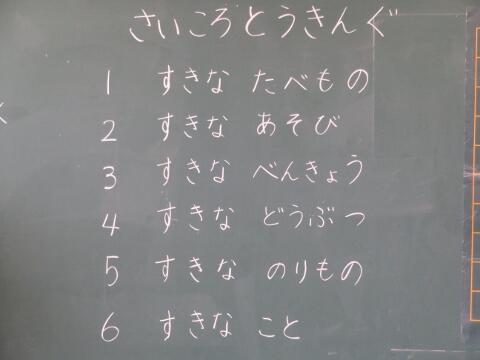 さいころとうきんぐ
1 すきな たべもの
2 すきな あそび
3 すきな べんきょう
4 すきな どうぶつ
5 すきな のりもの
6 すきな こと